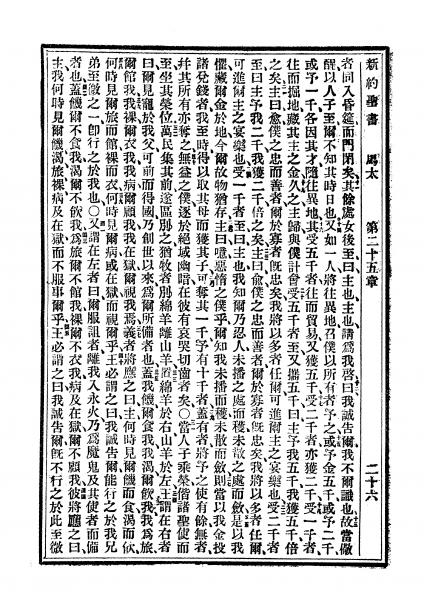 新約聖書 馬太 第二十五章 二十六
者同入昏筵而門閉矣其餘處女後至曰主也主也請爲我啓曰我誠告爾我不爾識也故當儆
醒以人子至爾不知其時日也又如一人將往異地召僕以所有者予之或予金五千或予二千
或予一千各因其才隨往異地其受五千者往而貿易又獲五千受二千者亦獲二千受一千者
往而掘地藏其主之金久之主歸與僕計會受五千者至又攜五千曰主予我五千我獲五千倍
之矣主曰愈僕之忠而善者爾於寡者旣忠矣我將以多者任爾可進爾主之宴樂也受二千者
至曰主予我二千我獲二千倍之矣主曰愈僕之忠而善者爾於寡者旣忠矣我將以多者任爾
可進爾主之宴樂也受一千者至曰主也我知爾乃忍人未播之處而穫未散之處而斂是以我
懼藏爾金於地今爾故物猶存主曰噫惡惰之僕乎爾知我未播而穫未散而斂則當以我金投
諸兌錢者我至時得以取其母而獲其子可奪其一千予有十千者蓋有者將予之使有餘無者
幷其所亦奪之無益之僕逐於絕域幽暗在彼有哀哭切齒者矣〇當人子乘榮偕諸聖使而
至坐其榮位萬民集其前遂區別之猶牧者別綿羊離山羊置綿羊於右山羊於左王謂在右者
曰爾見寵於我父可前而得國乃創世以來爲爾所備者也蓋我饑爾食我我渴爾飲我我爲旅
爾館我我裸爾衣我我病爾顧我我在獄爾視我焉義者將應之曰主何時見爾饑而食渴而飲
何時見爾旅而館裸而衣何時見爾病或在獄而視爾乎王必謂之曰我誠告爾能行之於我兄
弟至微之一卽行之於我也〇又謂在左者曰爾服詛者離我入永火乃爲魔鬼及其使者而備
者也蓋饑爾不食我渴爾不飲我爲旅爾不館我裸爾不衣我病及在獄爾不顧我彼將應之曰
主我何時見爾饑渴旅裸病及在獄而不服事爾乎王必謂之曰我誠告爾旣不行之於此至微